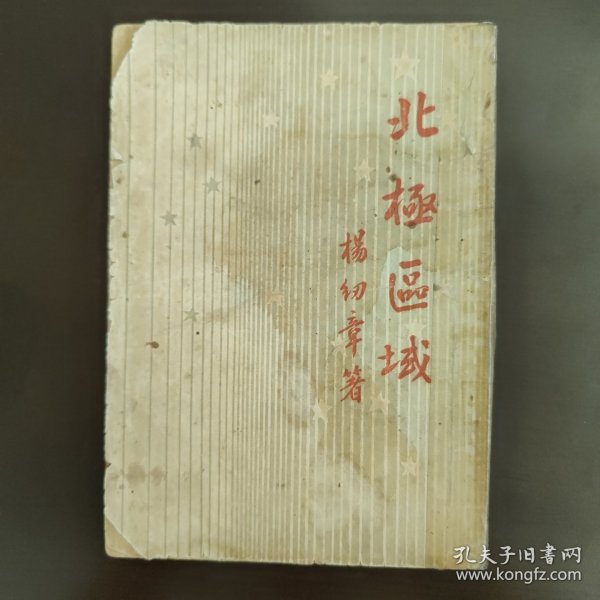 北極區域
楊紉章著
孔夫子旧書网
www.kongfz.com